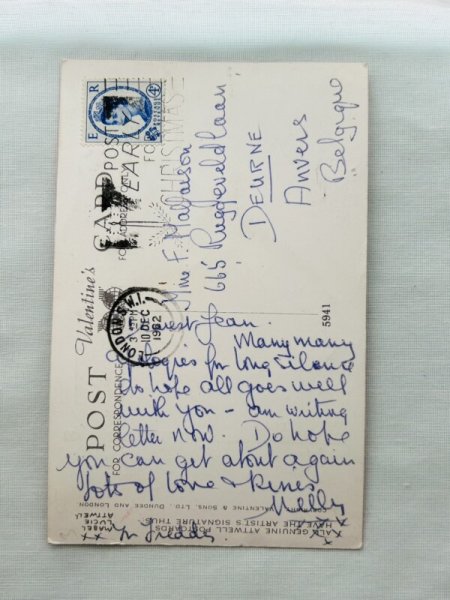 E R
POSTAGE REVENUE
4D
POST
EARLY
FOR
CHRISTMAS
POST CARD
FOR CORRESPONDENCE
FOR ADDRESS ONLY
Valentine's
LONDON S.W.1.
10 DEC
1962
Mme F.
665 Ruggeveldlaan
DEURNE
Anvers
Belgique
5941
Dearest Jean.
Many many
apologies for long silence
do hope all goes well
with you - am writing
letter now. Do hope
you can get about again
lots of love & kisses
Nelly
x x x
xx for Freddie.
ALL GENUINE ATTWELL POSTCARDS
HAVE THE ARTIST'S SIGNATURE THUS
MABEL
LUCIE
ATTWELL
COPYRIGHT. VALENTINE & SONS, LTD., DUNDEE AND LONDON